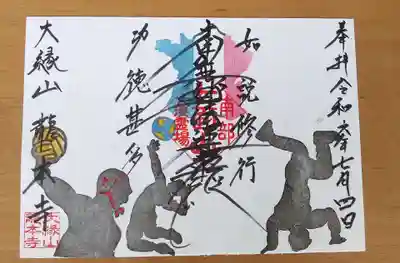 奉拝 令和六年七月四日
如説修行
南無妙法蓮華経
功徳甚多
大縁山 龍本寺
南部
霊場
大縁山
龍本寺